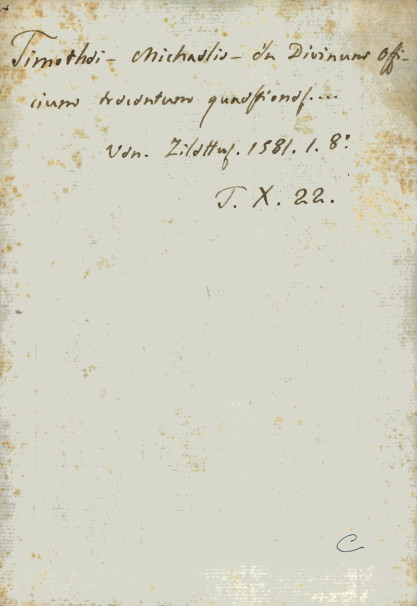 Timothei - Michaelis - In Divinum Offi-
cium trecentum quaestiones....
Ven. Zilettus. 1581. 1. 8º
T. X. 22.
C